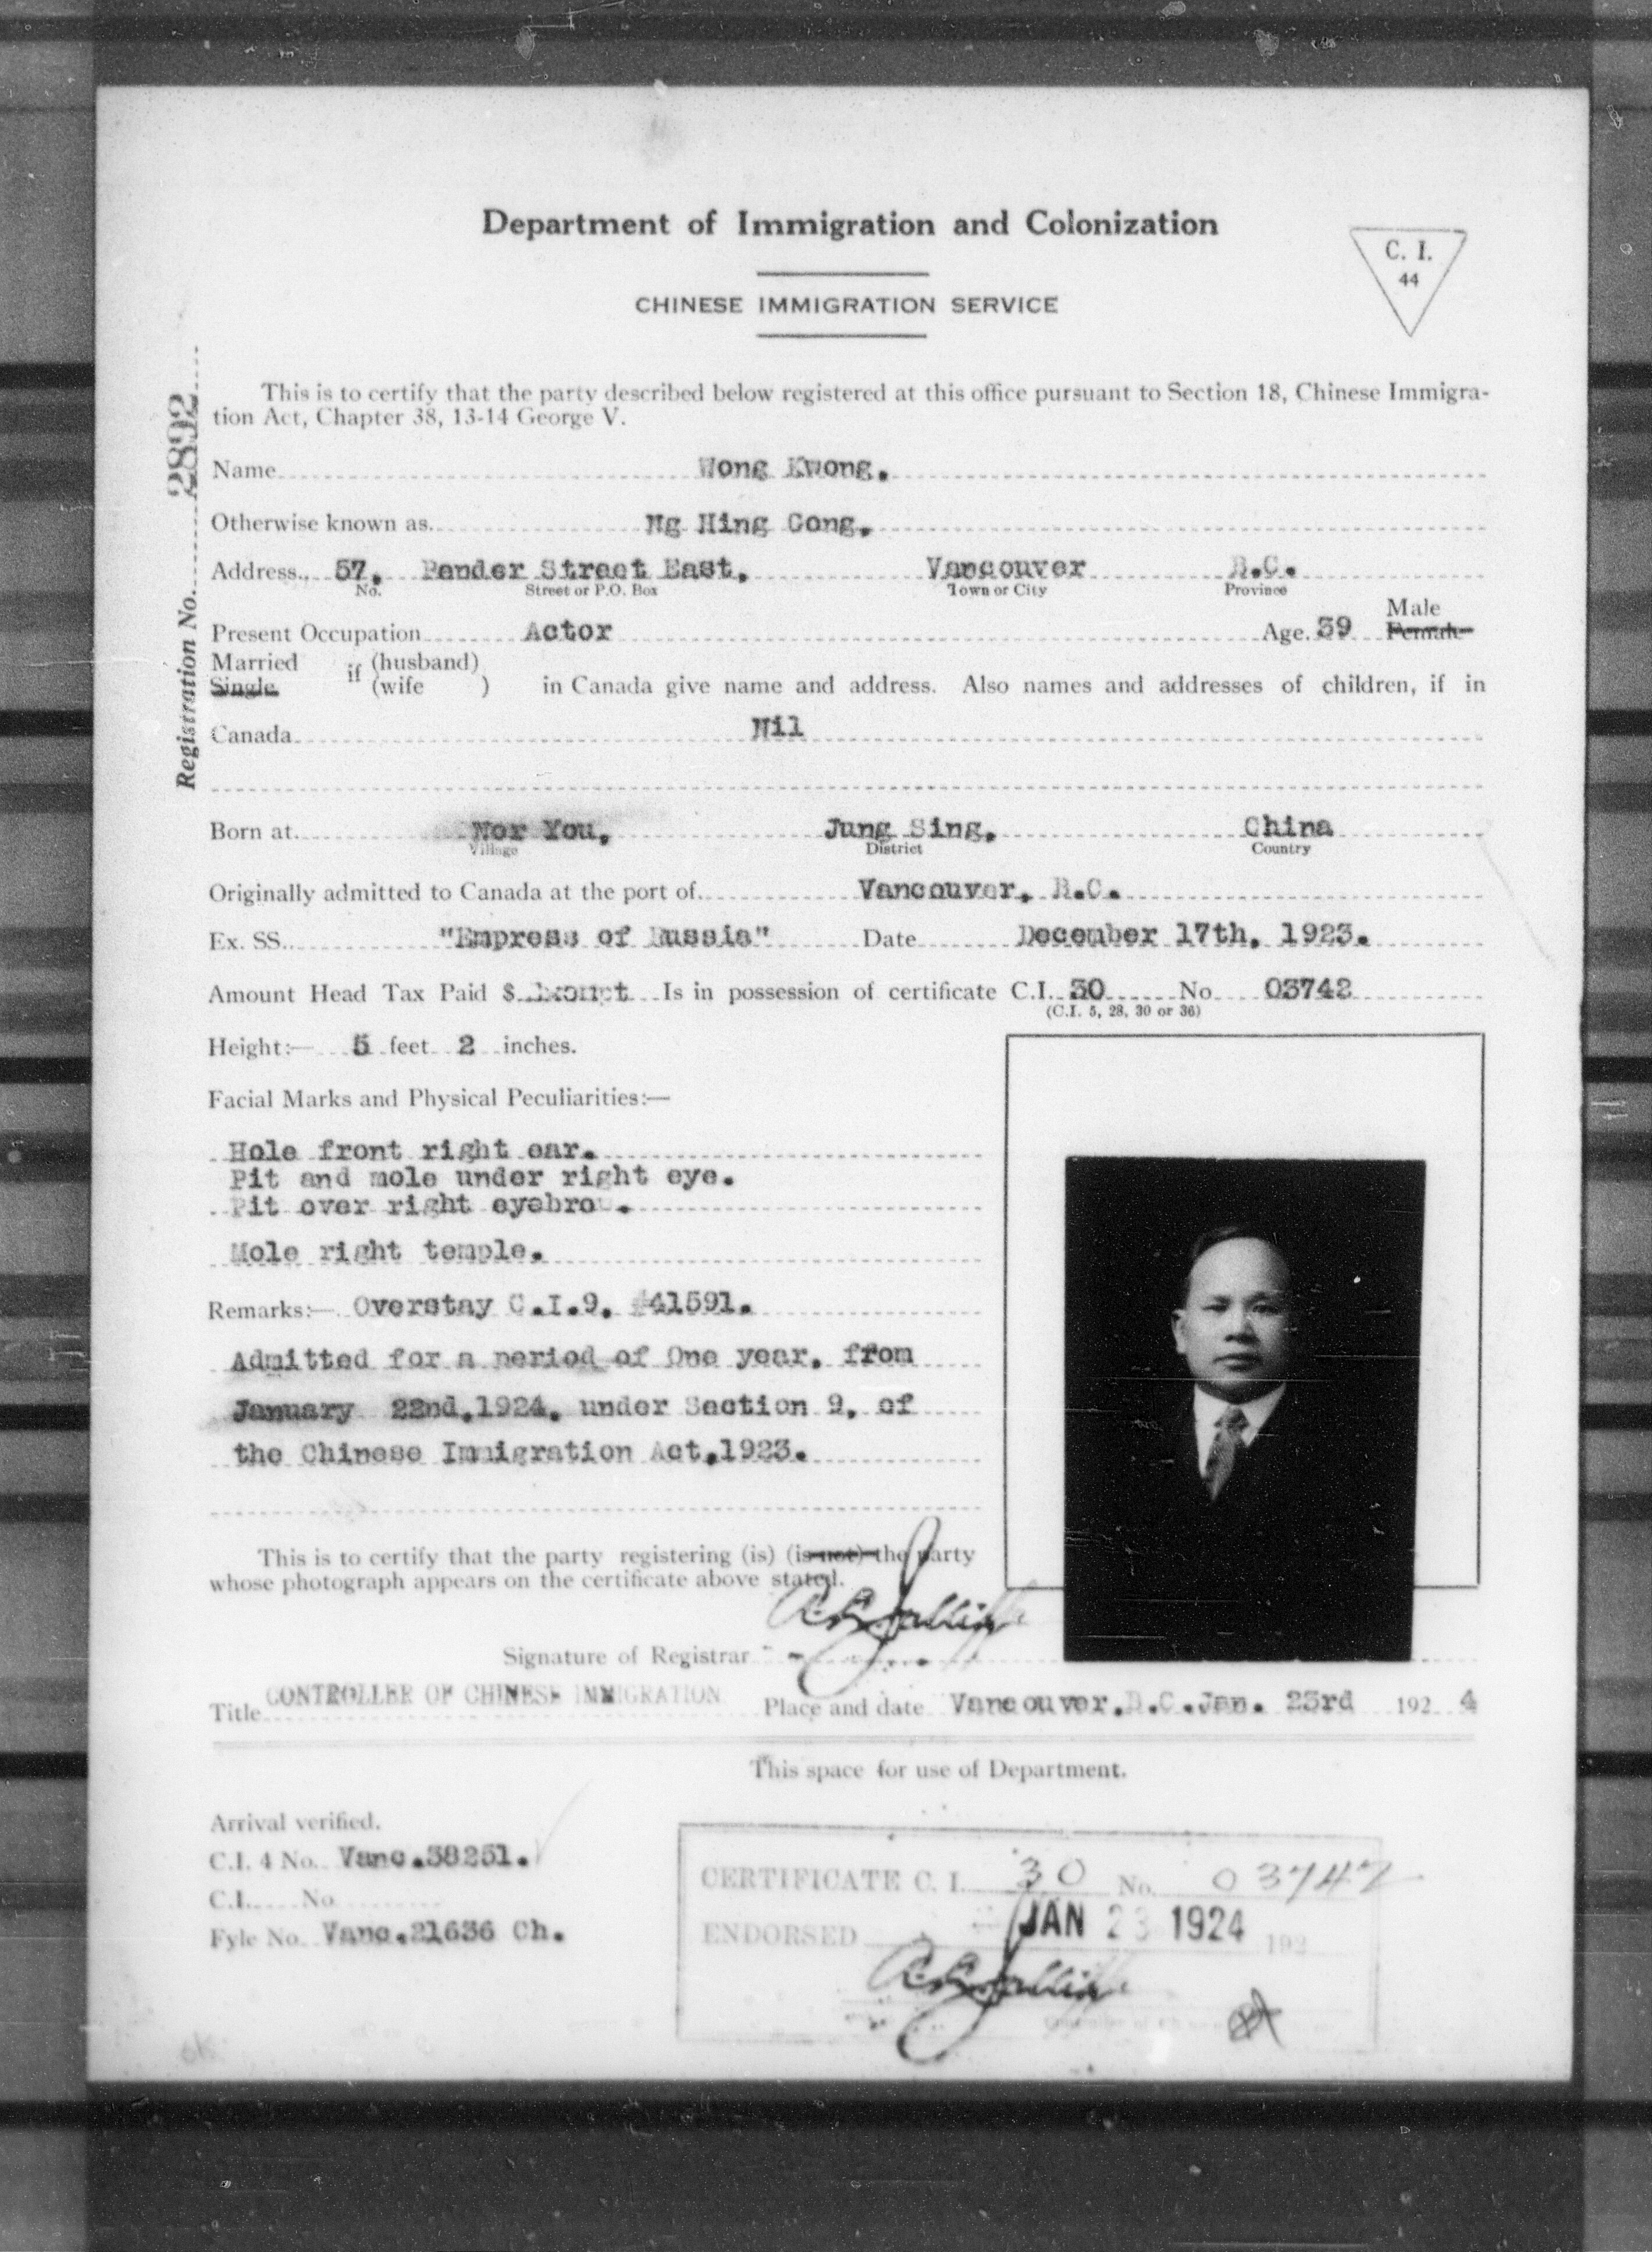 Department of Immigration and Colonization
C. I.
44
CHINESE IMMIGRATION SERVICE
Registration No. 2892
This is to certify that the party described below registered at this office pursuant to Section 18, Chinese Immigra-
tion Act, Chapter 38, 13-14 George V.
Name Wong Kwong.
Otherwise known as Ng Hing Cong.
Address 57, Pender Street East, Vancouver B.C.
No. Street or P.O. Box Town or City Province
Male
Present Occupation Actor Age 39 Female
Married if (husband)
Single (wife ) in Canada give name and address. Also names and addresses of children, if in
Canada Nil
Born at Nor You, Jung Sing, China
Village District Country
Originally admitted to Canada at the port of Vancouver, B.C.
Ex. SS. "Empress of Russia" Date December 17th, 1923.
Amount Head Tax Paid $ Exempt Is in possession of certificate C.I. 30 No 03742
(C.I. 5, 28, 30 or 36)
Height:— 5 feet 2 inches.
Facial Marks and Physical Peculiarities:—
Hole front right ear.
Pit and mole under right eye.
Pit over right eyebrow.
Mole right temple.
Remarks:— Overstay C.I.9. #41591.
Admitted for a period of One year, from
January 22nd, 1924, under Section 9, of
the Chinese Immigration Act, 1923.
This is to certify that the party registering (is) (is not) the party
whose photograph appears on the certificate above stated.
Signature of Registrar
Title CONTROLLER OF CHINESE IMMIGRATION Place and date Vancouver, B.C. Jan. 23rd 192 4
This space for use of Department.
Arrival verified.
C.I. 4 No. Vanc. 38251.
C.I. No
Fyle No. Vanc. 21636 Ch.
CERTIFICATE C. I. 30 No. 03742
ENDORSED JAN 23 1924 192
OK